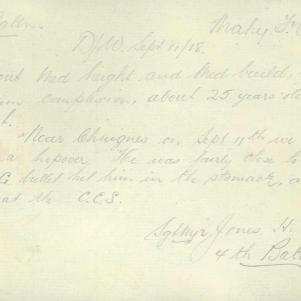 Battn.
D/W. Sept 21/18.
out Med height and Med build,
complexion, about 25 years old
Near Chuignes on Sept 11th we
a hopover. He was fairly close to
G bullet hit him in the stomach, a
at the C.C.S.
Sgt Myr Jones. H.
4th Batt